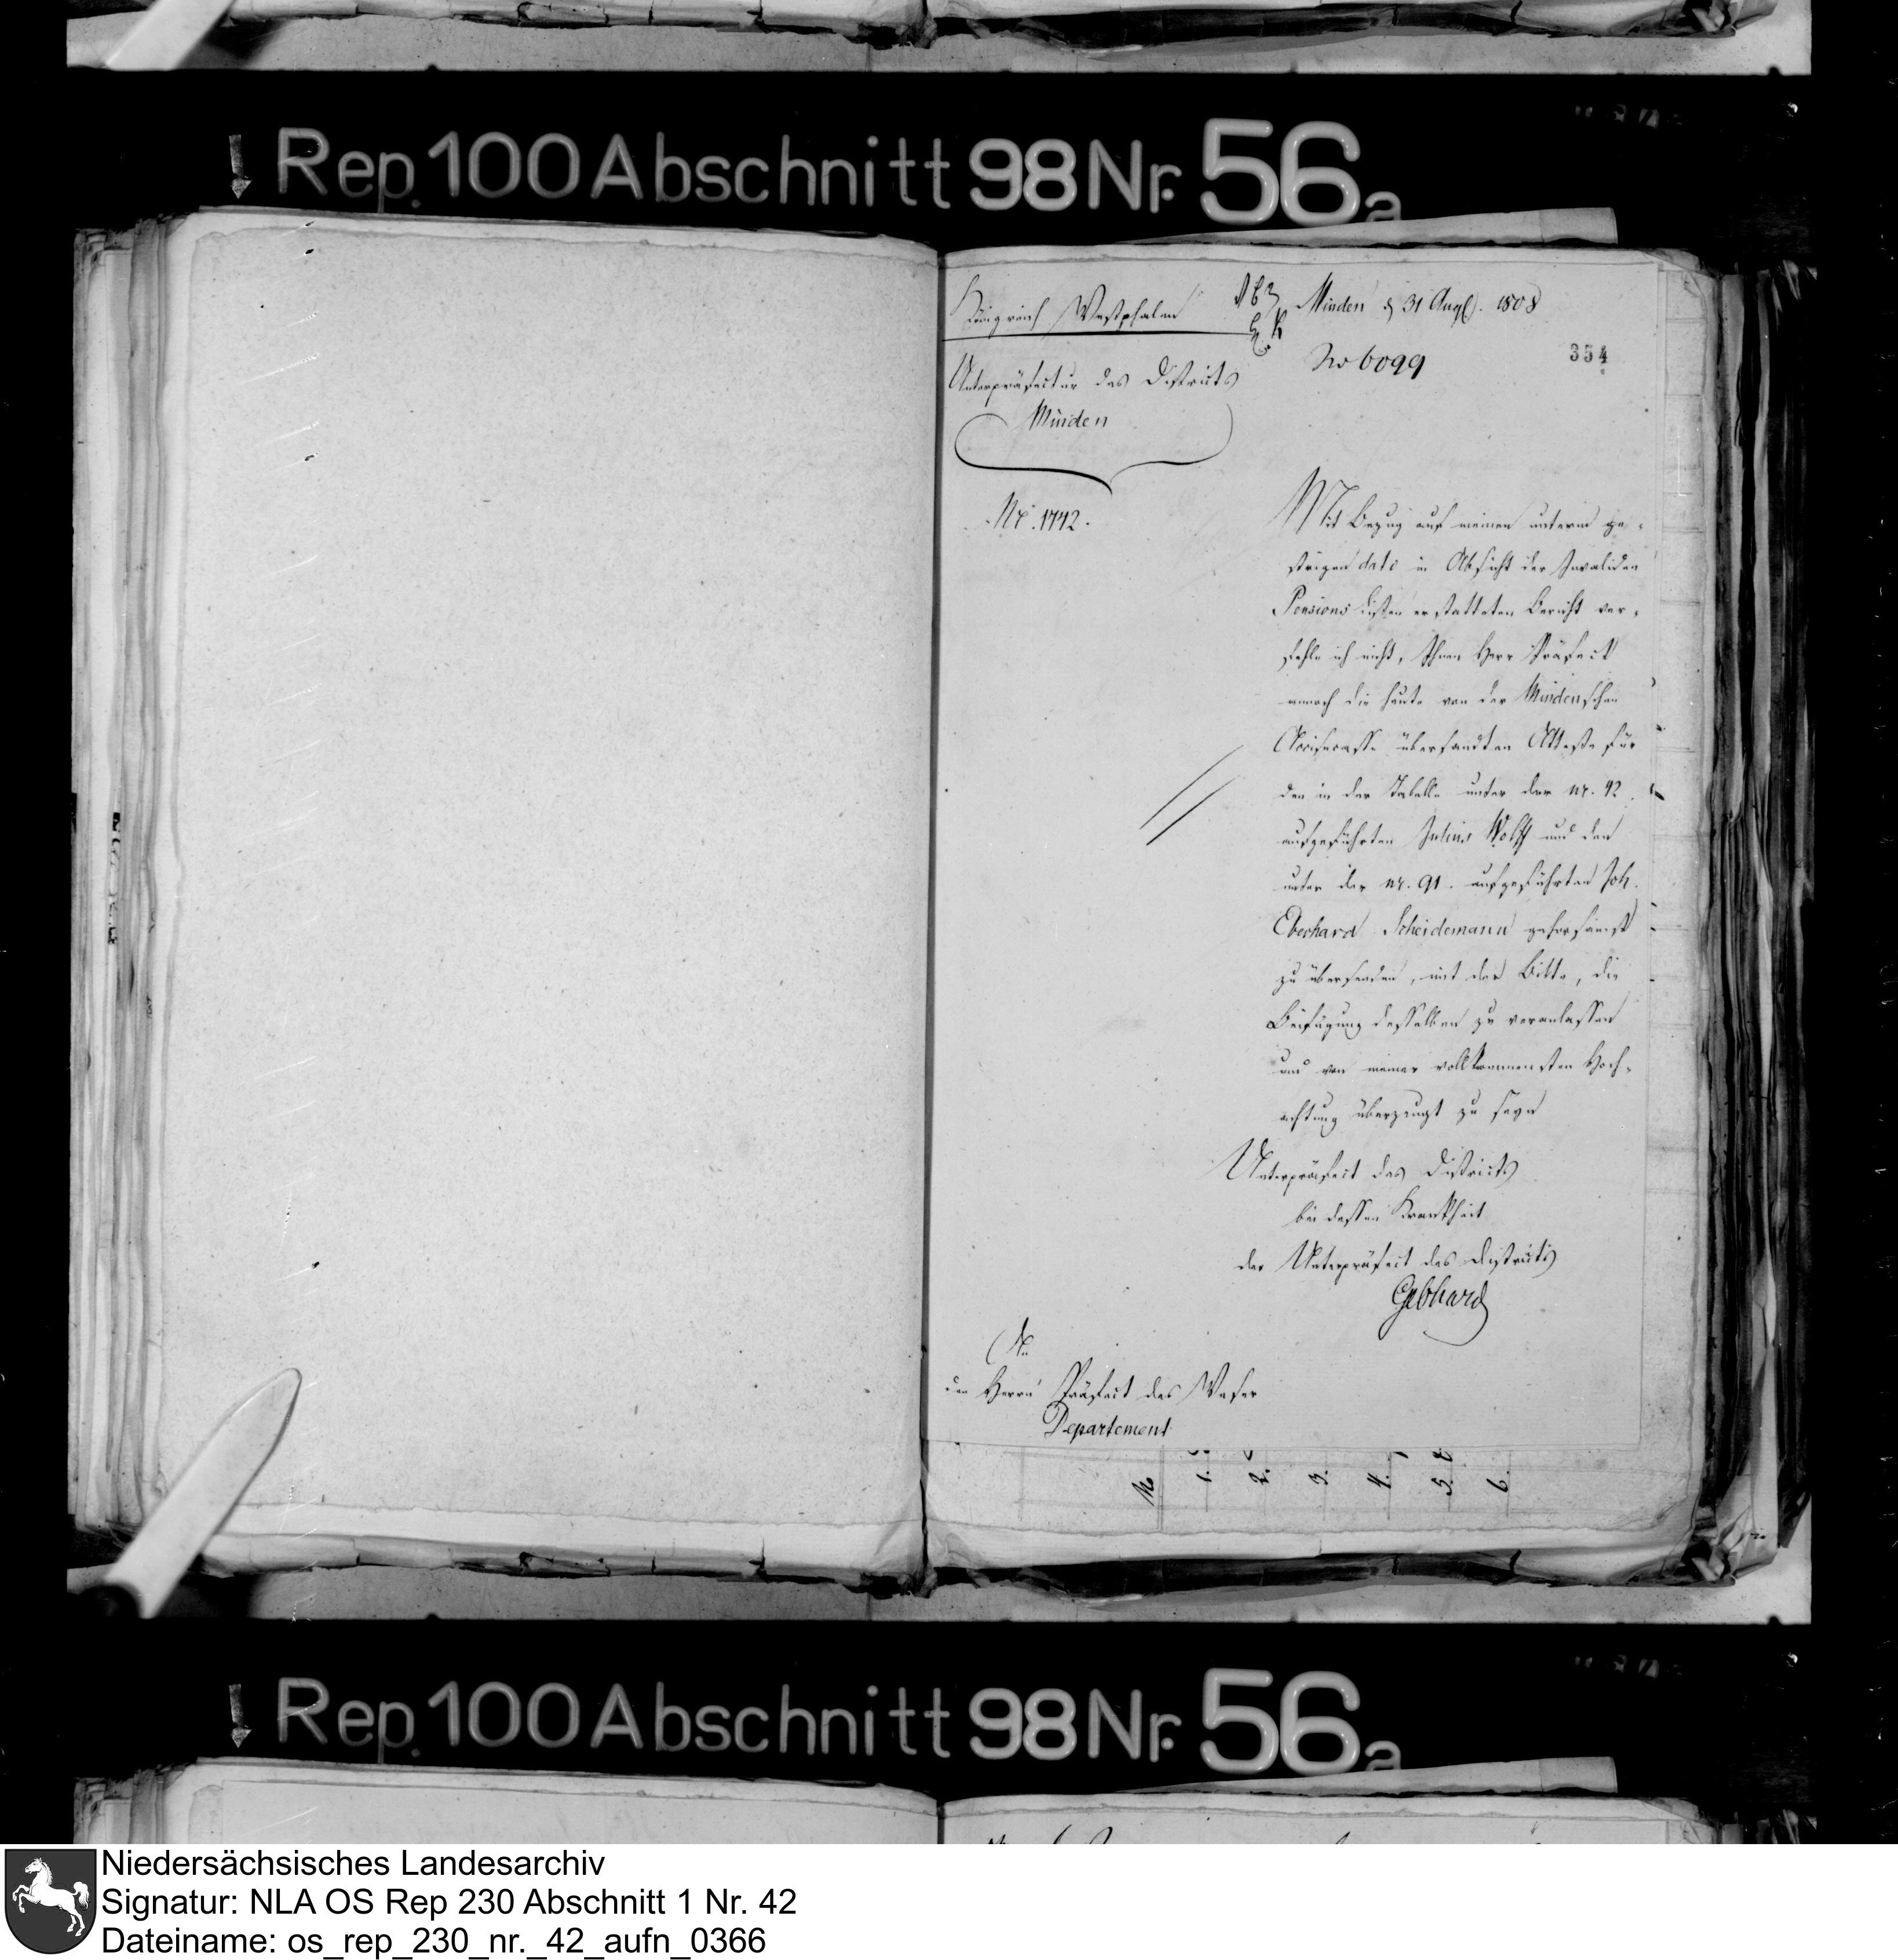 Rep. 100 Abschnitt 98 Nr. 56a
Königreich Westphalen
Minden d 31 Aug. 1808
No 6099
354
Unterpräfectur des Districts
Minden
Nr. 1772.
Mit Bezug auf meinen unterm ge-
strigen dato in Absicht der Invaliden
Pensions Listen erstatteten Bericht ver-
fehle ich nicht, Ihnen Herr Präfect
annoch die heute von der Mindenschen
Accisecasse übersandten Atteste für
den in der Tabelle unter der nr. 92.
aufgeführten Julius Wolff und den
unter der nr. 91. aufgeführten Joh.
Eberhard Scheidemann gehorsamst
zu übersenden, mit der Bitte, die
Beifügung desselben zu veranlassen
und von meiner vollkommensten Hoch-
achtung überzeugt zu seyn
Unterpräfect des Districts
bei dessen Krankheit
der Unterpräfect des Districts
Gebhard
An
den Herrn Präfect des Weser
Departement
No 1. 2. 3. 4. 5. 6.
Rep. 100 Abschnitt 98 Nr. 56a
Niedersächsisches Landesarchiv
Signatur: NLA OS Rep 230 Abschnitt 1 Nr. 42
Dateiname: os_rep_230_nr._42_aufn_0366